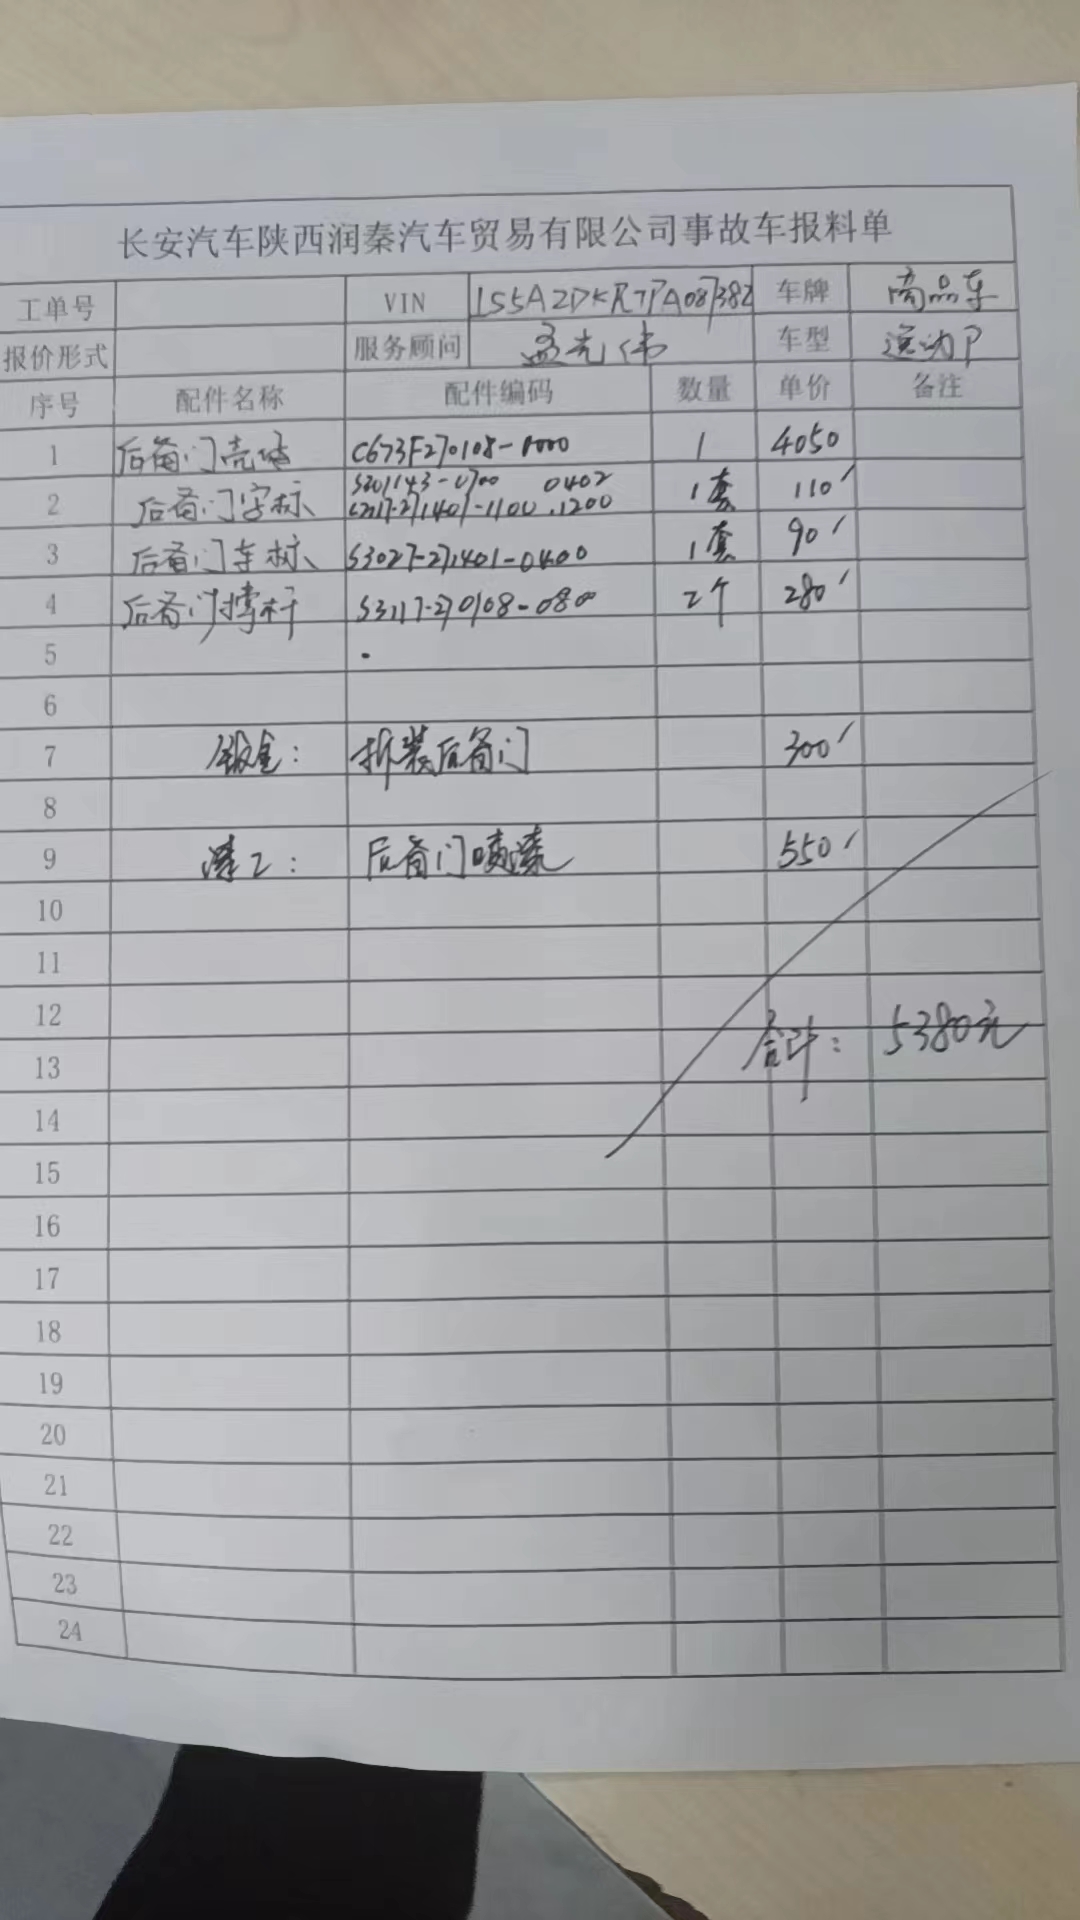 长安汽车陕西润秦汽车贸易有限公司事故车报料单
工单号 VIN LS5A2DKR7PA087382 车牌 商品车
报价形式 服务顾问 孟光伟 车型 逸动P
序号 配件名称 配件编码 数量 单价 备注
1 后备门壳体 C673F270108-0000 1 4050
S201143-0700 0402
2 后备门字标 1套 110
3 后备门车标 S3027-271401-0400 1套 90
4 后备门撑杆 S3117-270108-0800 2个 280
5
6
7 钣金: 拆装后备门 300
8
9 漆工: 后备门喷漆 550
10
11
12
合计: 5380元
13
14
15
16
17
18
19
20
21
22
23
24